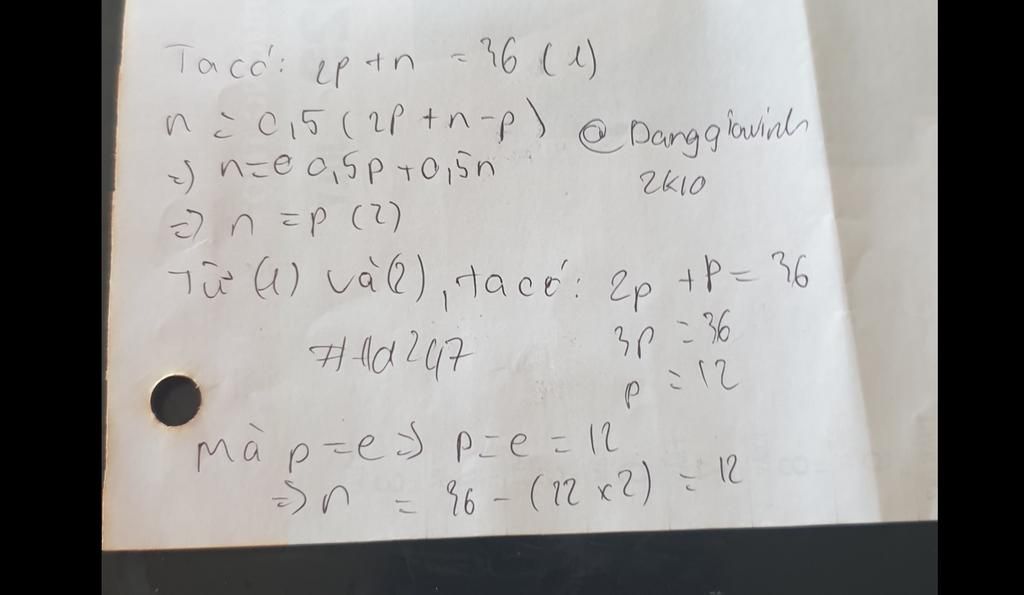 Ta có: 2p + n = 36 (1)
n = 0,5 (2p + n - p)
@Danggiavinh
2K10
=> n = 0,5p + 0,5n
=> n = p (2)
Từ (1) và (2), ta có: 2p + p = 36
3p = 36
p = 12
#Hd247
Mà p = e => p = e = 12
=> n = 36 - (12 x 2) = 12